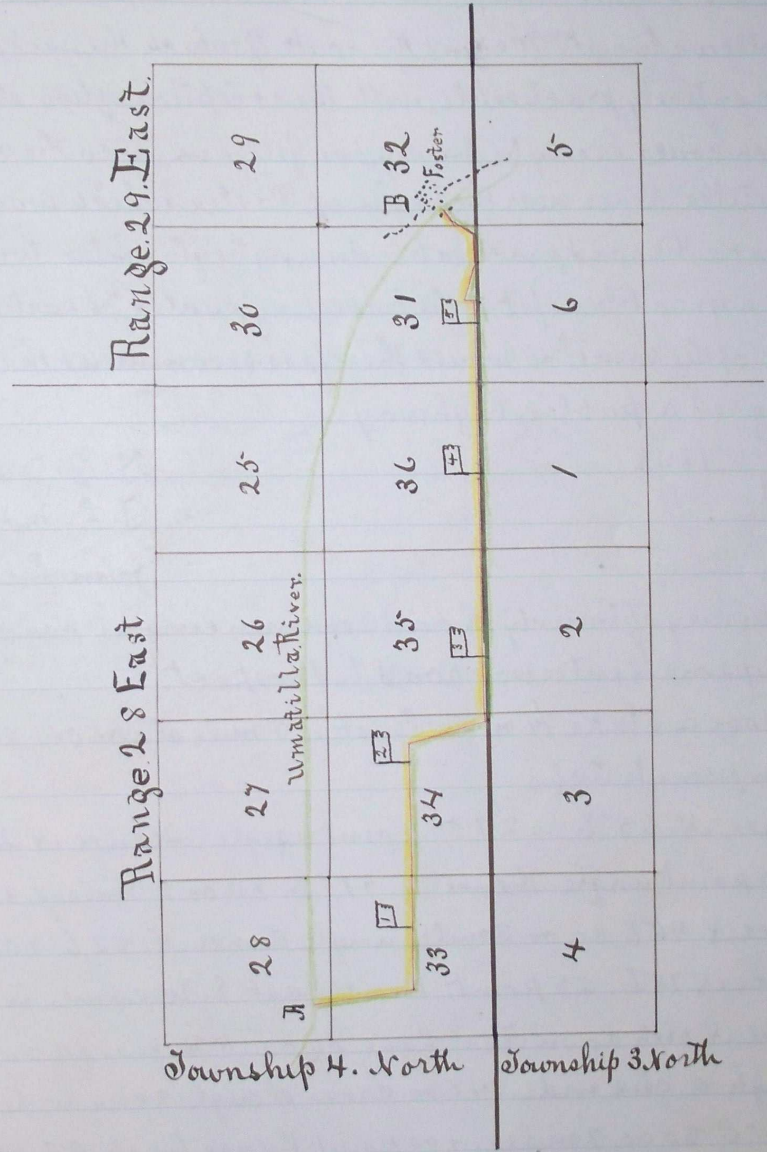 Range. 28 East
Range. 29. East.
28 27 26 25 30 29
Umatilla River.
A
B
Foster
33 34 35 36 31 32
4 3 2 1 6 5
Township 4. North
Township 3 North